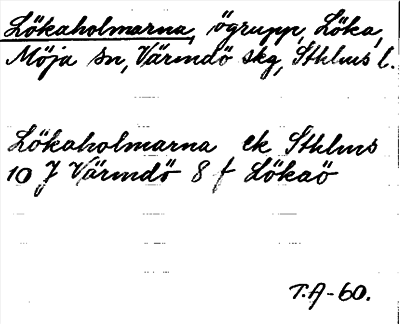 Lökaholmarna, ögrupp, Löka,
Möja sn, Värmdö skg, Sthlms l.
Lökaholmarna ek Sthlms
10 J Värmdö 8 f Lökaö
T.A-60.